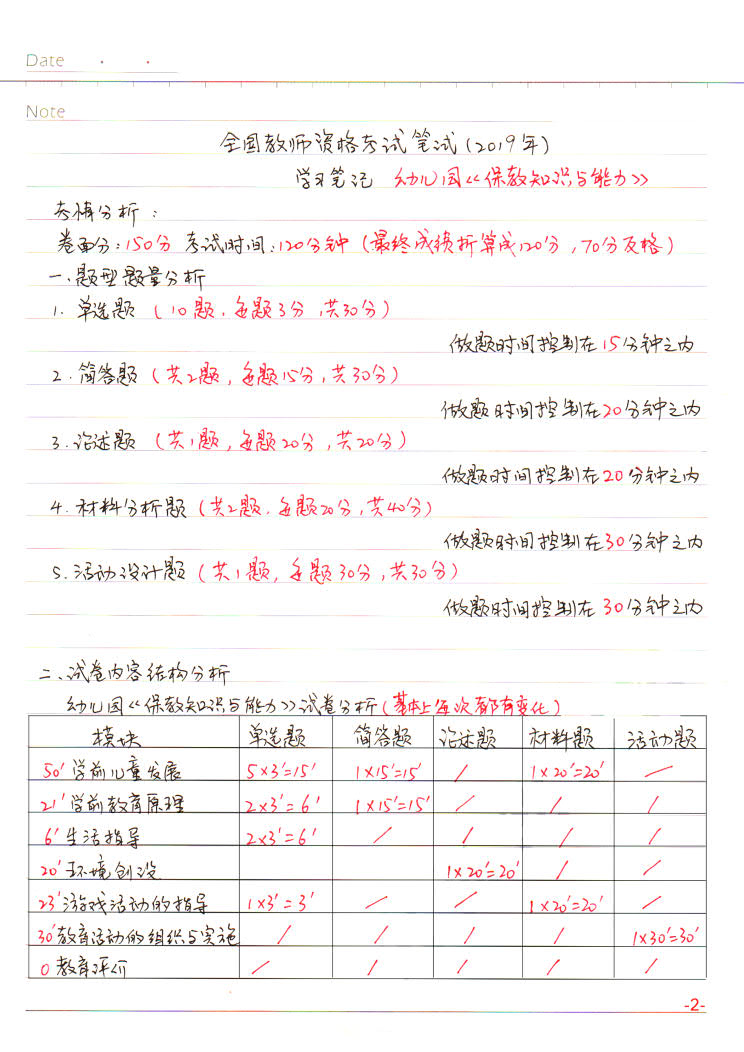 Date
Note
全国教师资格考试笔试(2019年)
学习笔记 幼儿园《保教知识与能力》
考情分析:
卷面分:150分 考试时间:120分钟(最终成绩折算成120分,70分及格)
一、题型题量分析
1. 单选题(10题,每题3分,共30分)
做题时间控制在15分钟之内
2. 简答题(共2题,每题15分,共30分)
做题时间控制在20分钟之内
3. 论述题(共1题,每题20分,共20分)
做题时间控制在20分钟之内
4. 材料分析题(共2题,每题20分,共40分)
做题时间控制在30分钟之内
5. 活动设计题(共1题,每题30分,共30分)
做题时间控制在30分钟之内
二、试卷内容结构分析
幼儿园《保教知识与能力》试卷分析(基本上每次都有变化)
模块 单选题 简答题 论述题 材料题 活动题
50'学前儿童发展 5×3'=15' 1×15'=15' / 1×20'=20' /
21'学前教育原理 2×3'=6' 1×15'=15' / / /
6'生活指导 2×3'=6' / / / /
20'环境创设 1×20'=20' / /
23'游戏活动的指导 1×3'=3' / / 1×20'=20' /
30'教育活动的组织与实施 / / / / 1×30'=30'
0 教育评价 / / / / /
-2-